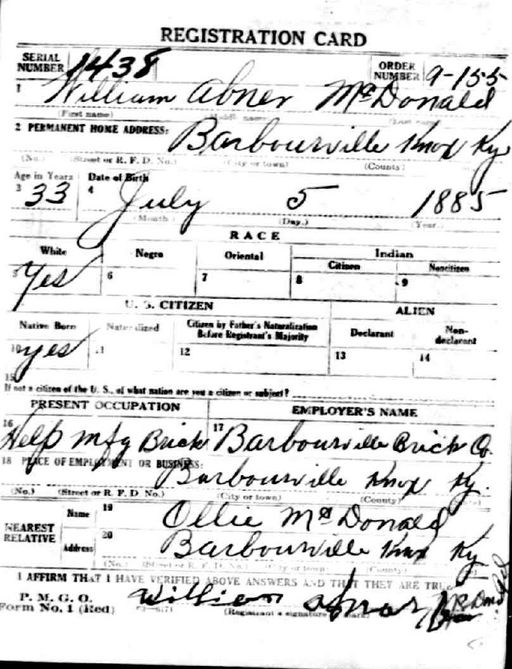 REGISTRATION CARD
SERIAL NUMBER 1438 ORDER NUMBER 9-155
1 William Abner McDonald
(First name) (Middle name) (Last name)
2 PERMANENT HOME ADDRESS:
Barbourville Knox Ky
(No.) (Street or R. F. D. No.) (City or town) (County)
Age in Years Date of Birth
3 33 4 July 5 1885
(Month.) (Day.) (Year.)
RACE
White Negro Oriental Indian
Citizen Noncitizen
5 Yes 6 7 8 9
U. S. CITIZEN ALIEN
Native Born Naturalized Citizen by Father's Naturalization Before Registrant's Majority Declarant Non-declarant
10 yes 11 12 13 14
15
If not a citizen of the U. S., of what nation are you a citizen or subject?
PRESENT OCCUPATION EMPLOYER'S NAME
16 Help Mfg Brick 17 Barbourville Brick Co.
18 PLACE OF EMPLOYMENT OR BUSINESS:
Barbourville Knox Ky.
(No.) (Street or R. F. D. No.) (City or town) (County)
NEAREST RELATIVE
Name 19 Ollie McDonald
Address 20 Barbourville Knox Ky
(No.) (Street or R. F. D. No.) (City or town) (County)
I AFFIRM THAT I HAVE VERIFIED ABOVE ANSWERS AND THAT THEY ARE TRUE
P. M. G. O.
Form No. 1 (Red) William
(Registrant's signature or mark)